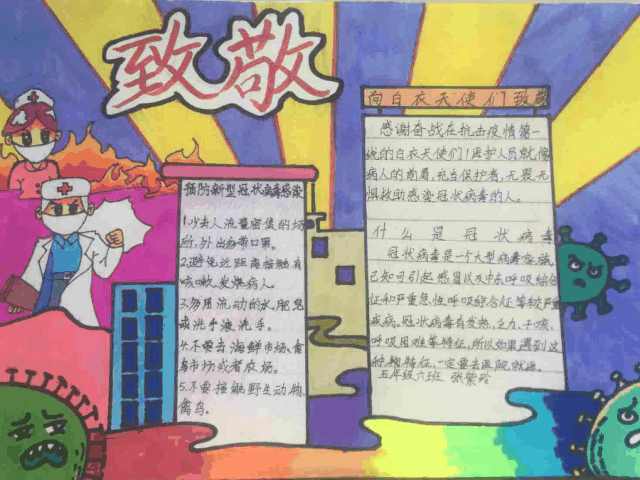 致敬
预防新型冠状病毒感染
1.少去人流量密集的场
所,外出多带口罩。
2.避免近距离接触有
咳嗽、发烧病人。
3.勿用流动的水、肥皂
或洗手液洗手。
4.不要去海鲜市场、禽
鸟市场或者农场。
5.不要接触野生动物、
禽鸟。
向白衣天使们致敬
感谢奋战在抗击疫情第一
线的白衣天使们!医护人员就像
病人的肩,充当保护者,无畏无
惧救助感染冠状病毒的人。
什么是冠状病毒
冠状病毒是一个大型病毒家族,
已知可引起感冒以及中东呼吸综合
征和严重急性呼吸综合征等较严重
疾病。冠状病毒有发热、乏力、干咳、
呼吸困难等特征,所以如果遇到这
种类特征,一定要去医院就医。
五年级六班 张紫玲